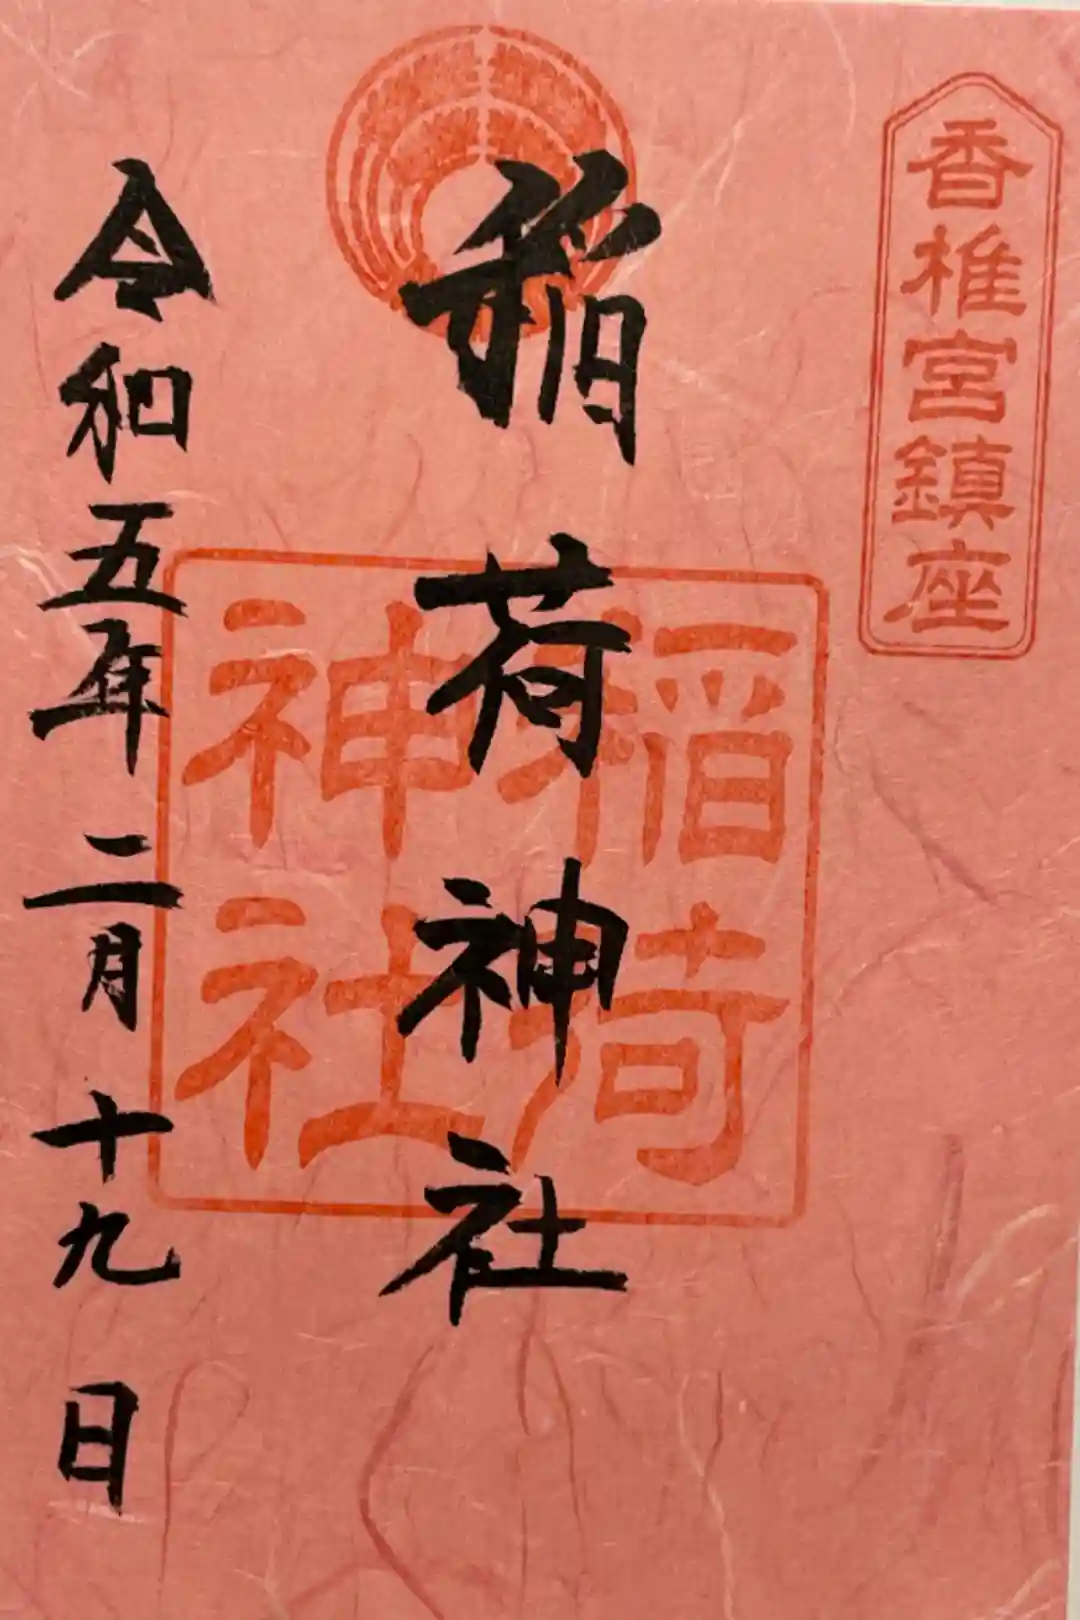 香椎宮鎮座
稲荷神社
稲荷
神社
令和五年二月十九日